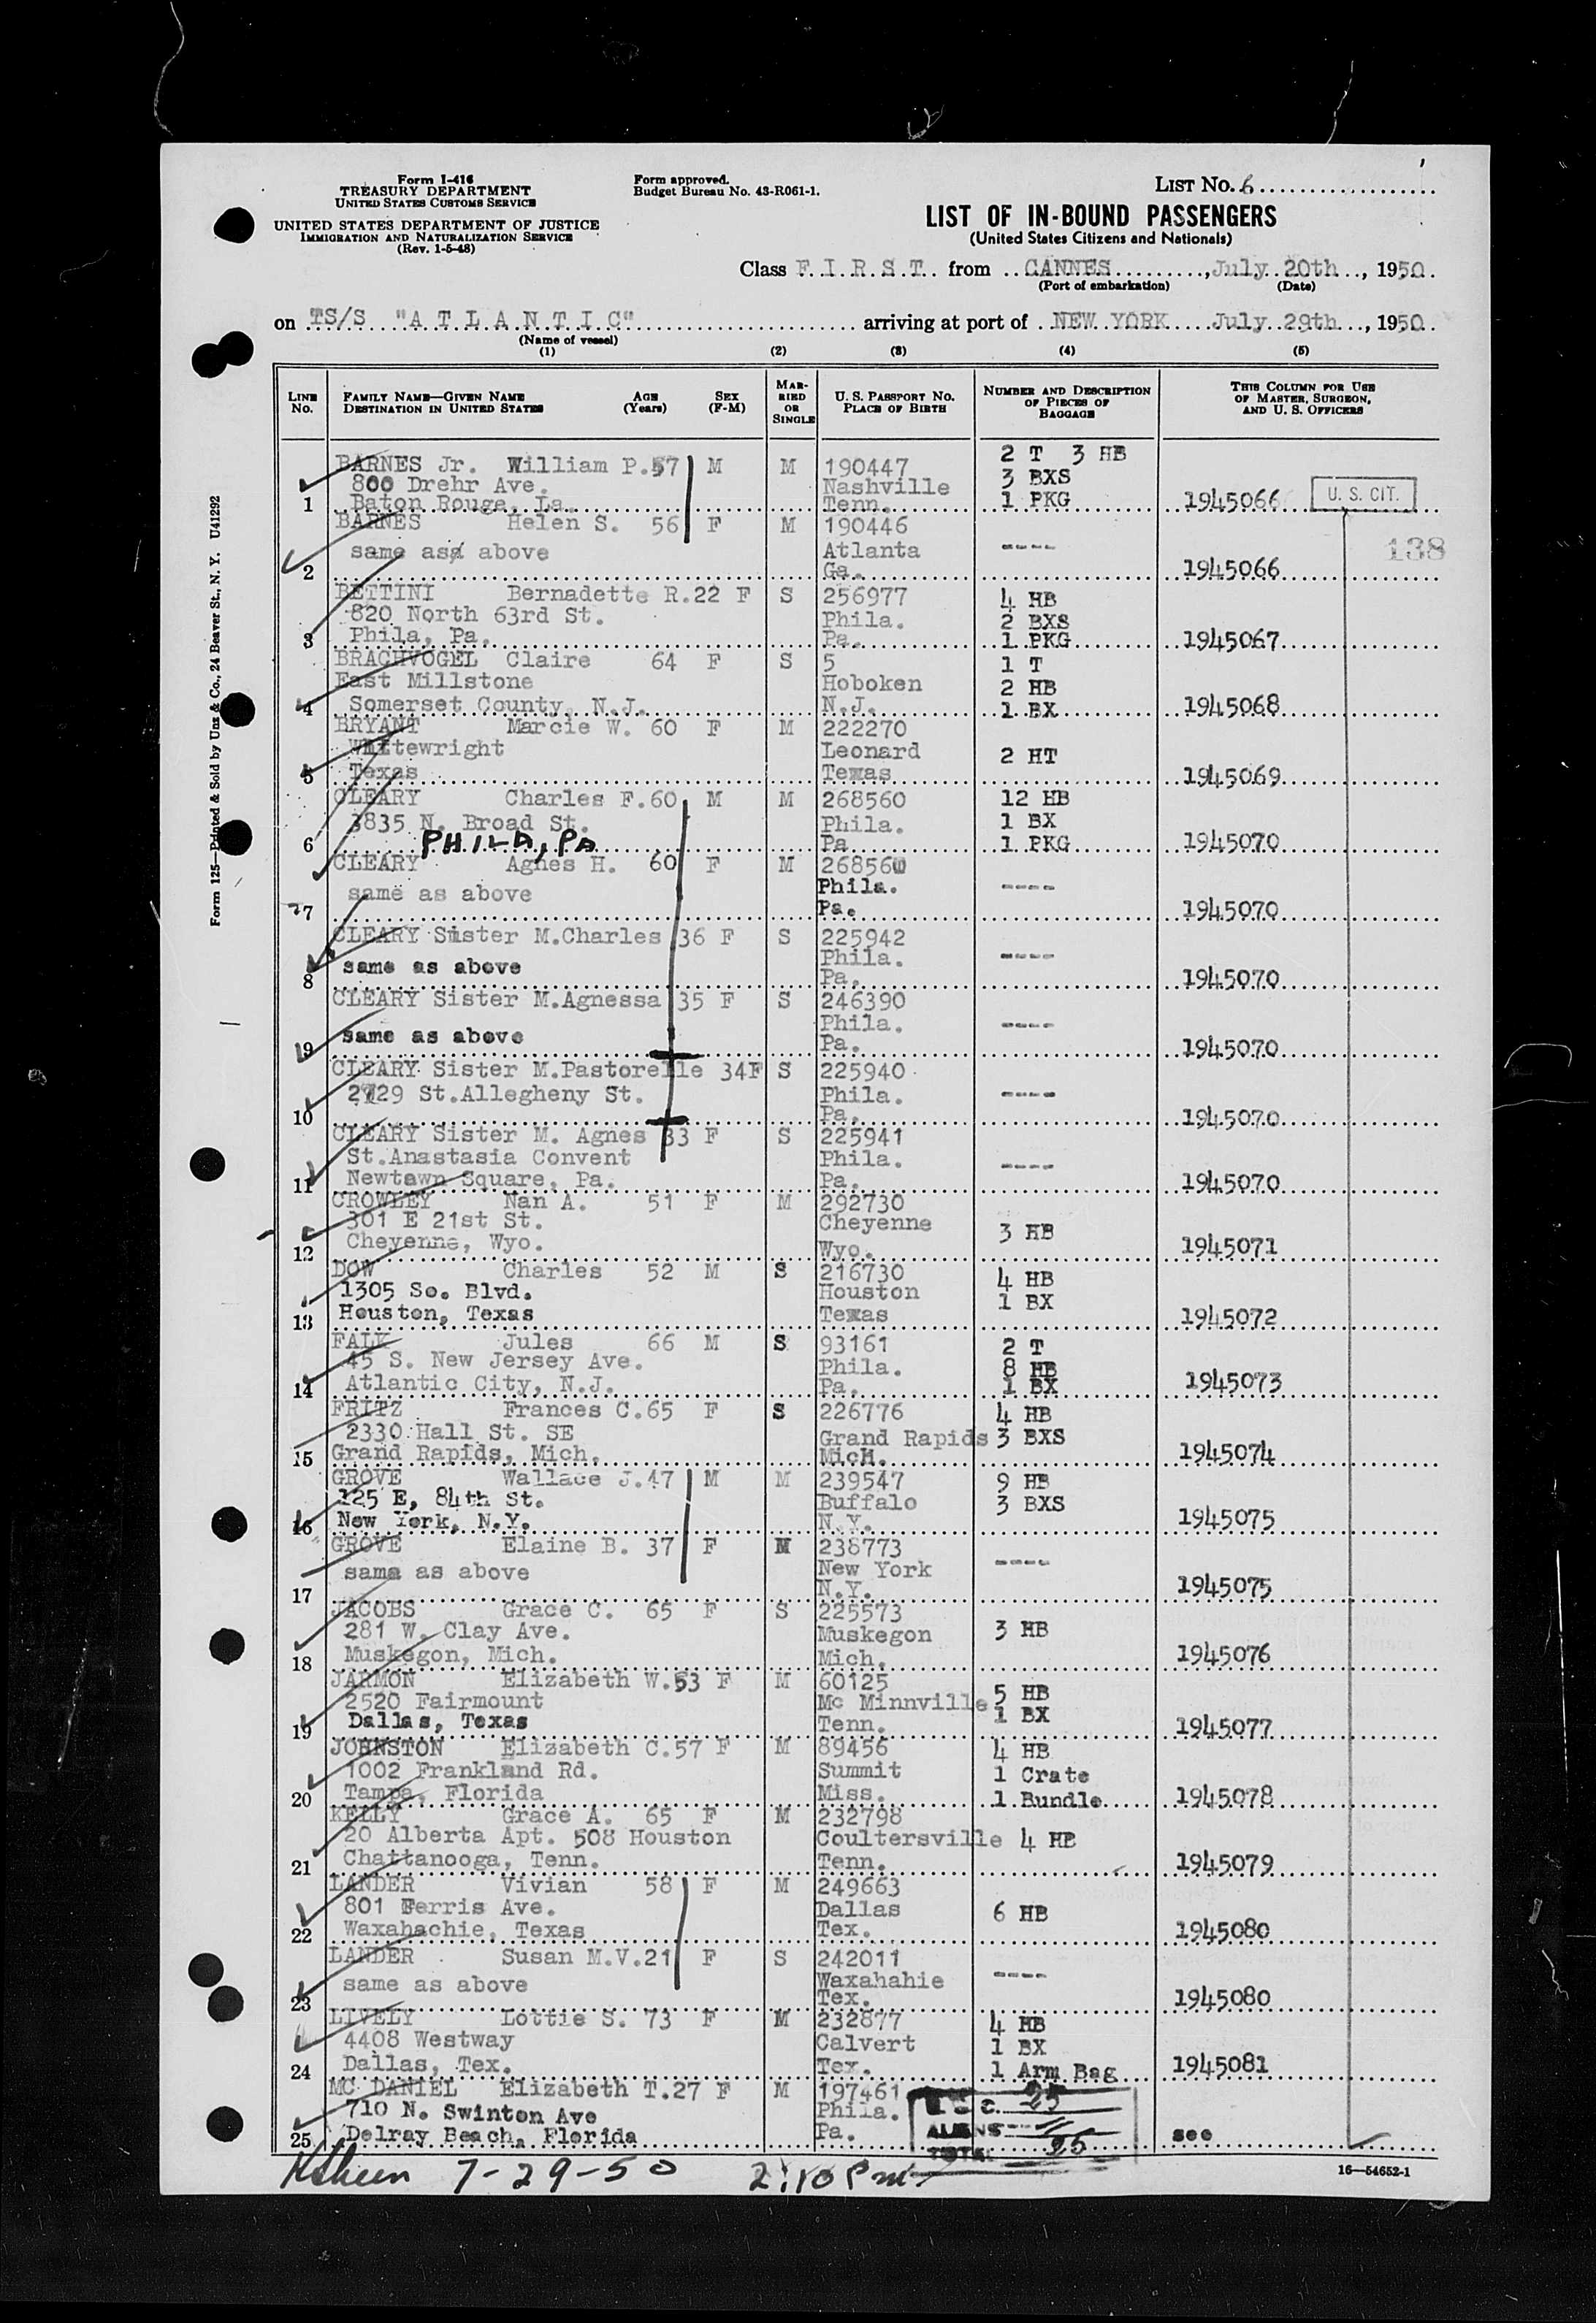 Form I-416
TREASURY DEPARTMENT
UNITED STATES CUSTOMS SERVICE
UNITED STATES DEPARTMENT OF JUSTICE
IMMIGRATION AND NATURALIZATION SERVICE
(Rev. 1-5-48)
Form approved.
Budget Bureau No. 43-R061-1.
LIST No. 6
LIST OF IN-BOUND PASSENGERS
(United States Citizens and Nationals)
Class F.I.R.S.T. from CANNES, July 20th, 1950
(Port of embarkation) (Date)
on TS/S "A T L A N T I C" arriving at port of NEW YORK July 29th, 1950
(Name of vessel)
(1) (2) (3) (4) (5)
LINE No. FAMILY NAME—GIVEN NAME DESTINATION IN UNITED STATES AGE (Years) SEX (F-M) MARRIED OR SINGLE U. S. PASSPORT No. PLACE OF BIRTH NUMBER AND DESCRIPTION OF PIECES OF BAGGAGE THIS COLUMN FOR USE OF MASTER, SURGEON, AND U. S. OFFICERS
BARNES Jr. William P. 57 M M 190447 2 T 3 HB
800 Drehr Ave. Nashville 3 BXS
1 Baton Rouge, La. Tenn. 1 PKG 1945066 U. S. CIT.
BARNES Helen S. 56 F M 190446
same as above Atlanta ---- 138
2 Ga. 1945066
BETTINI Bernadette R. 22 F S 256977 4 HB
820 North 63rd St. Phila. 2 BXS
3 Phila, Pa. Pa. 1 PKG 1945067
BRACHVOGEL Claire 64 F S 5 1 T
East Millstone Hoboken 2 HB
4 Somerset County, N.J. N.J. 1 BX 1945068
BRYANT Marcie W. 60 F M 222270
Whitewright Leonard 2 HT
5 Texas Texas 1945069
CLEARY Charles F. 60 M M 268560 12 HB
3835 N. Broad St. Phila. 1 BX
6 PHILA, PA Pa 1 PKG 1945070
CLEARY Agnes H. 60 F M 26856
same as above Phila. ----
7 Pa. 1945070
CLEARY Sister M.Charles 36 F S 225942
same as above Phila. ----
8 Pa. 1945070
CLEARY Sister M.Agnessa 35 F S 246390
same as above Phila. ----
9 Pa. 1945070
CLEARY Sister M.Pastorelle 34 F S 225940
2729 St.Allegheny St. Phila. ----
10 Pa. 1945070
CLEARY Sister M. Agnes 33 F S 225941
St.Anastasia Convent Phila. ----
11 Newtown Square, Pa. Pa. 1945070
CROWLEY Nan A. 51 F M 292730
301 E 21st St. Cheyenne 3 HB
12 Cheyenne, Wyo. Wyo. 1945071
DOW Charles 52 M S 216730 4 HB
1305 So. Blvd. Houston 1 BX
13 Houston, Texas Texas 1945072
FALK Jules 66 M S 93161 2 T
45 S. New Jersey Ave. Phila. 8 HB
14 Atlantic City, N.J. Pa. 1 BX 1945073
FRITZ Frances C. 65 F S 226776 4 HB
2330 Hall St. SE Grand Rapids 3 BXS
15 Grand Rapids, Mich. Mich. 1945074
GROVE Wallace J. 47 M M 239547 9 HB
125 E, 84th St. Buffalo 3 BXS
16 New York, N.Y. N.Y. 1945075
GROVE Elaine B. 37 F M 238773
same as above New York ----
17 N.Y. 1945075
JACOBS Grace C. 65 F S 225573
281 W. Clay Ave. Muskegon 3 HB
18 Muskegon, Mich. Mich. 1945076
JARMON Elizabeth W. 53 F M 60125
2520 Fairmount Mc Minnville 5 HB
19 Dallas, Texas Tenn. 1 BX 1945077
JOHNSTON Elizabeth C. 57 F M 89456 4 HB
1002 Frankland Rd. Summit 1 Crate
20 Tampa, Florida Miss. 1 Bundle 1945078
KELLY Grace A. 65 F M 232798
20 Alberta Apt. 508 Houston Coultersville 4 HB
21 Chattanooga, Tenn. Tenn. 1945079
LANDER Vivian 58 F M 249663
801 Ferris Ave. Dallas 6 HB
22 Waxahachie, Texas Tex. 1945080
LANDER Susan M.V. 21 F S 242011
same as above Waxahahie ----
23 Tex. 1945080
LIVELY Lottie S. 73 F M 232877 4 HB
4408 Westway Calvert 1 BX
24 Dallas, Tex. Tex. 1 Arm Bag 1945081
MC DANIEL Elizabeth T. 27 F M 197461
710 N. Swinton Ave Phila. 25
25 Delray Beach, Florida Pa. ALIENS 25 see
7-29-50 2:10 Pm
16—54652-1
Form 125—Printed & Sold by Unz & Co., 24 Beaver St., N. Y. U41292